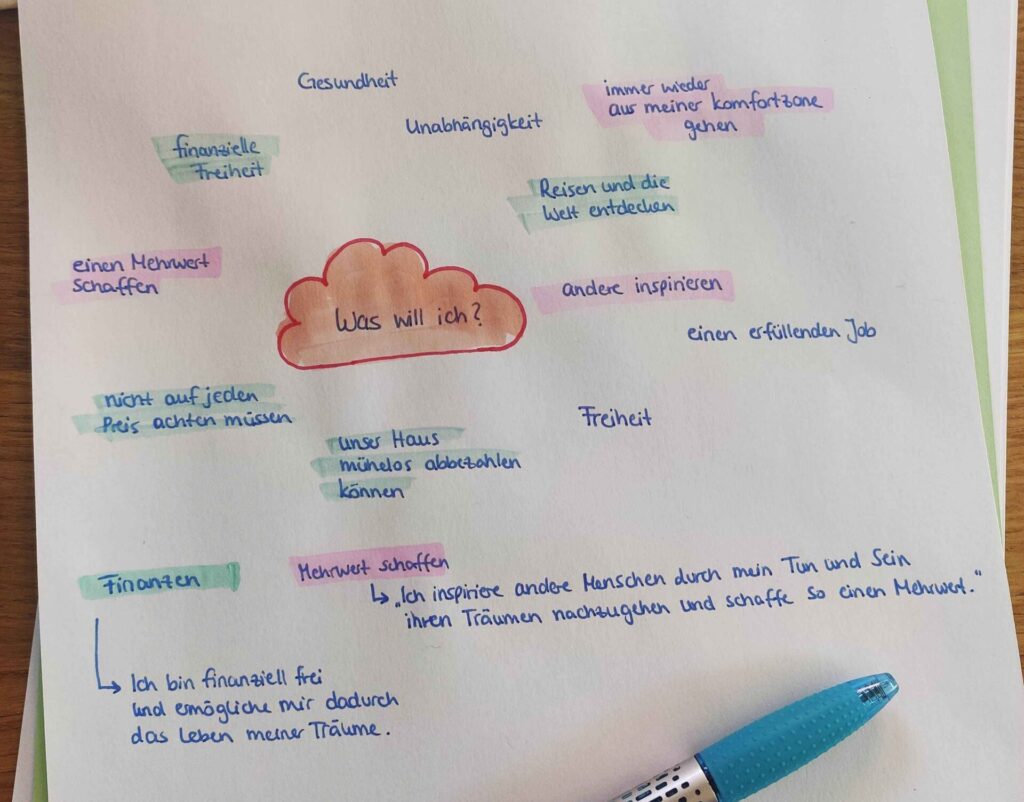 Gesundheit
Unabhängigkeit
immer wieder
aus meiner Komfortzone
gehen
finanzielle
Freiheit
Reisen und die
Welt entdecken
einen Mehrwert
schaffen
Was will ich?
andere inspirieren
einen erfüllenden Job
nicht auf jeden
Preis achten müssen
unser Haus
mühelos abbezahlen
können
Freiheit
Finanzen
Mehrwert schaffen
„Ich inspiriere andere Menschen durch mein Tun und Sein
ihren Träumen nachzugehen und schaffe so einen Mehrwert.“
Ich bin finanziell frei
und ermögliche mir dadurch
das Leben meiner Träume.